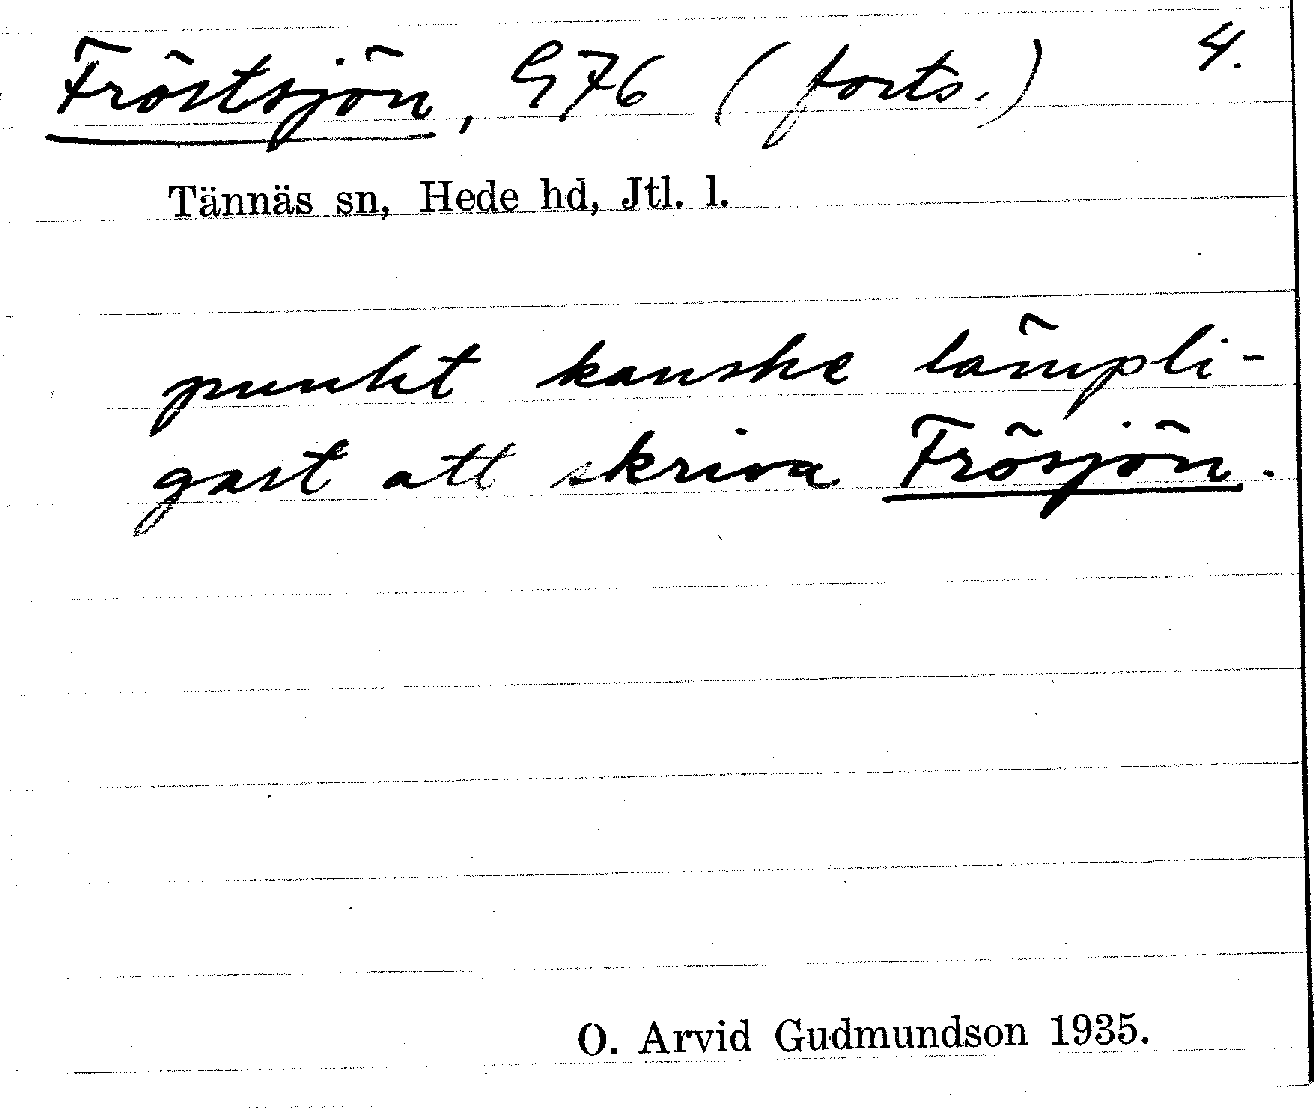 Fröstsjön, G76 (forts.) 4.
Tännäs sn, Hede hd, Jtl. l.
punkt kanske lämpli-
gast att skriva Frösjön.
O. Arvid Gudmundson 1935.